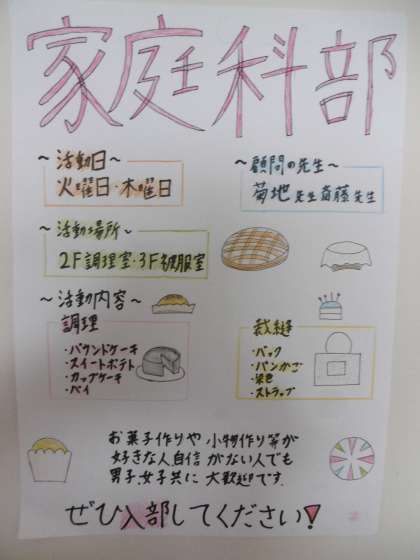 家庭科部
～活動日～
火曜日・木曜日
～顧問の先生～
菊地先生 斎藤先生
～活動場所～
2F調理室・3F被服室
～活動内容～
調理
・パウンドケーキ
・スイートポテト
・カップケーキ
・パイ
裁縫
・バック
・パンかご
・染色
・ストラップ
お菓子作りや小物作り等が
好きな人自信がない人でも
男子女子共に大歓迎です.
ぜひ入部してください!